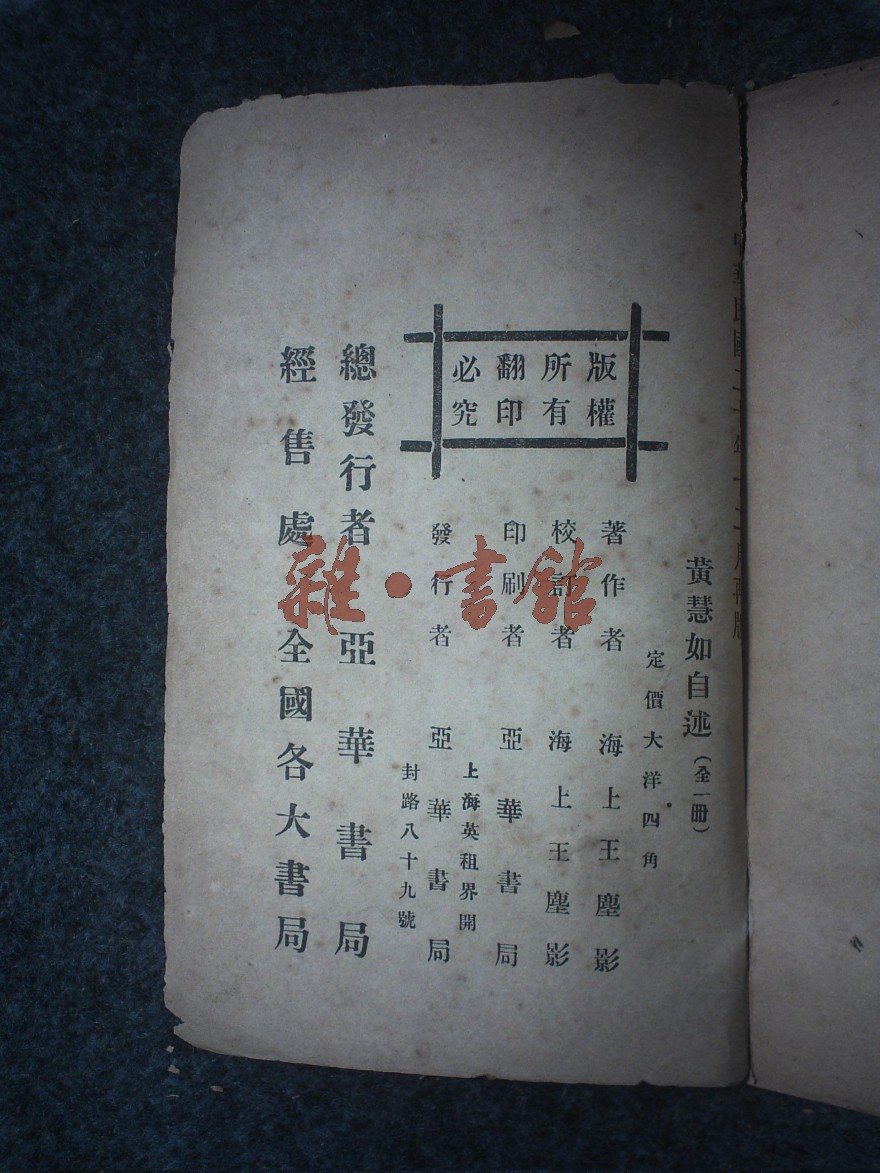 中華民國二十年十二月再版
黃慧如自述（全一冊）
定價大洋四角
著作者 海上王塵影
校訂者 海上王塵影
印刷者 亞華書局
上海英租界開
發行者 亞華書局
封路八十九號
版權
所有
翻印
必究
總發行者 亞華書局
經售處 全國各大書局
雜·書館